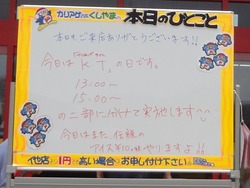 カリアゲ くしやま 本日のひとこと
本日もご来店ありがとうございます!!
今日は K T, の日です。
13:00~
15:00~
の二部に分けて実施します
今日はまた、伝線の
アイス第10回やりますよ!!
他店 1円でも高い場合 お申し付け下さい